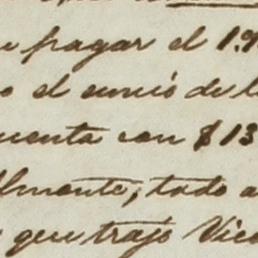 pagar el 19
o el envió de l
uenta con $13
lmente, todo a
que trajo Vice